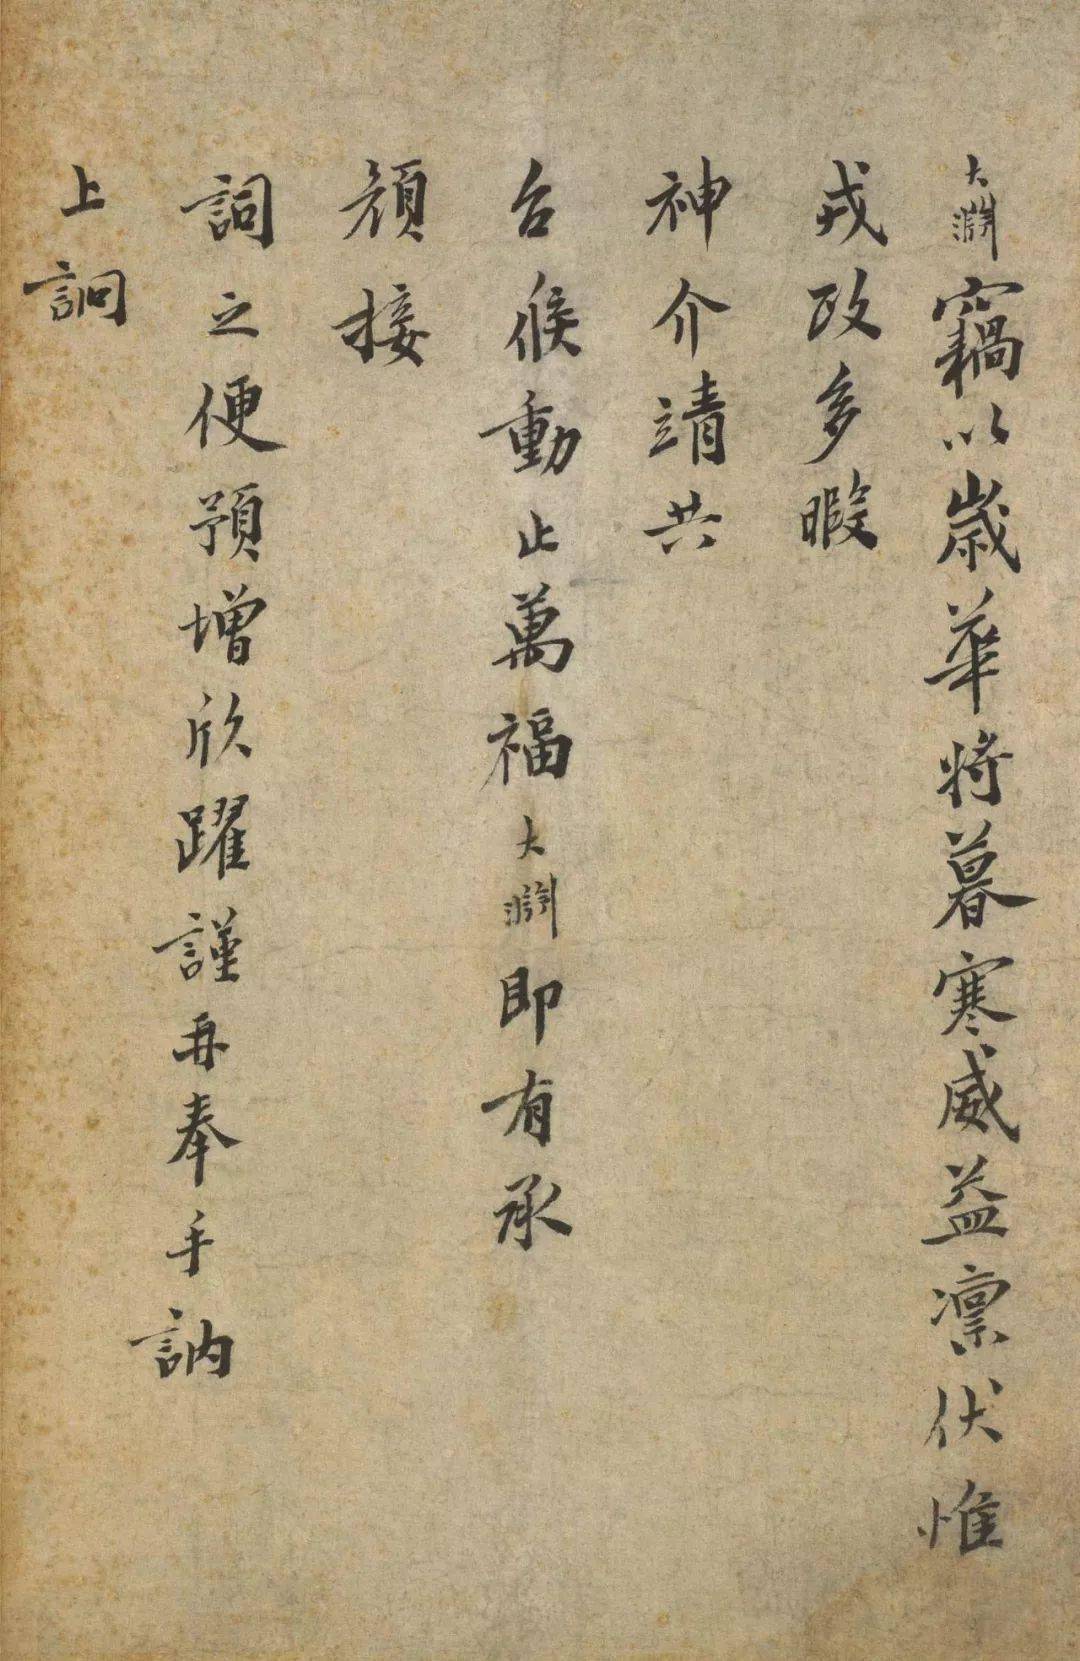 大淵竊以歲華將暮寒威益凛伏惟
戎政多暇
神介靖共
台候動止萬福大淵即有承
顏接
詞之便預增欣躍謹再奉手訥
上詗